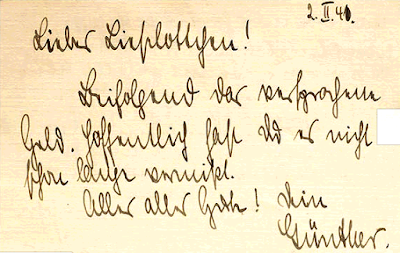 2. II. 40.
Liebes Lieslottchen!
Beifolgend das versprochene
Geld. Hoffentlich hast Du es nicht
schon lange vermißt.
Alles alles Gute! Dein
Günther.